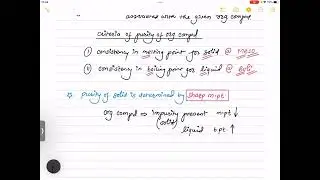 associated with the given org compd
criteria of purity of org compd
① consistency in melting point for solid @
② consistency in boiling point for liquid @
purity of solid is determined by sharp m.pt.
org compd ⇒ impurity present m.pt ↓
(solid)
liquid b.pt ↑